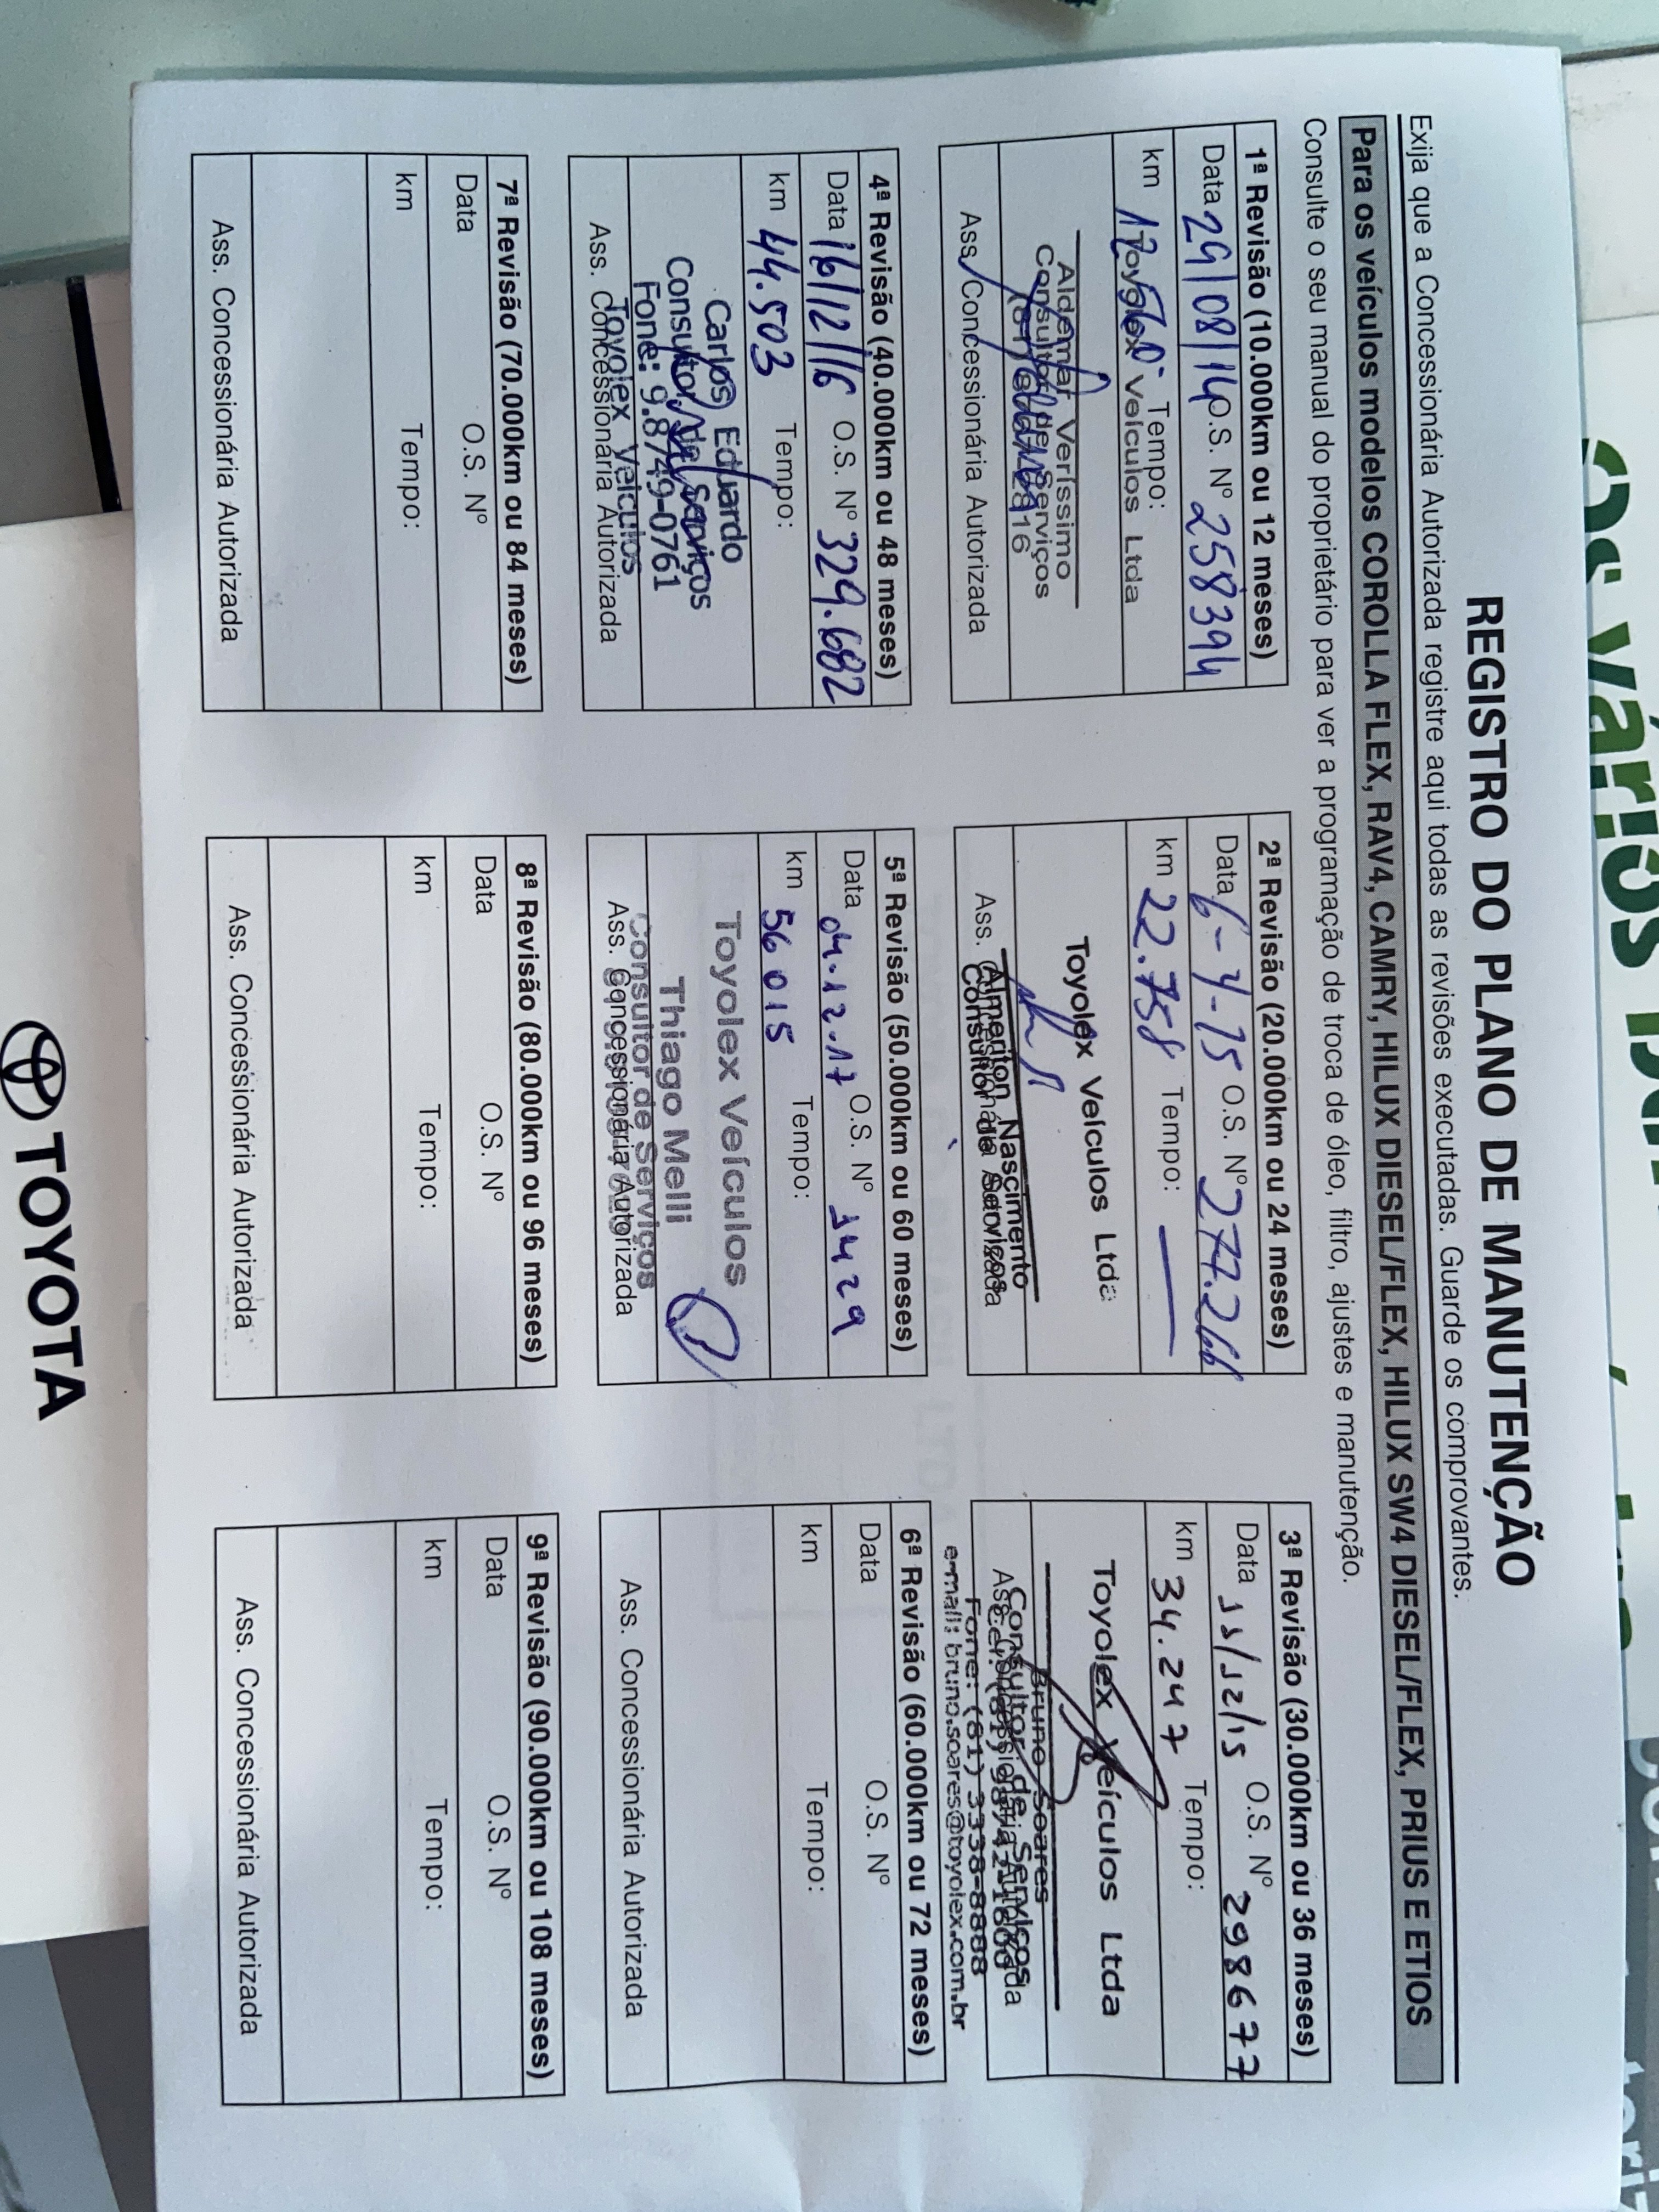 REGISTRO DO PLANO DE MANUTENÇÃO
Exija que a Concessionária Autorizada registre aqui todas as revisões executadas. Guarde os comprovantes.
Para os veículos modelos COROLLA FLEX, RAV4, CAMRY, HILUX DIESEL/FLEX, HILUX SW4 DIESEL/FLEX, PRIUS E ETIOS
Consulte o seu manual do proprietário para ver a programação de troca de óleo, filtro, ajustes e manutenção.
1ª Revisão (10.000km ou 12 meses)
Data 29/08/14 O.S. Nº 258394
km Tempo:
Toyolex Veículos Ltda
Aldemar Veríssimo
Consultor de Serviços
Ass. Concessionária Autorizada
2ª Revisão (20.000km ou 24 meses)
Data 6-4-15 O.S. Nº 277.266
km 22.758 Tempo:
Toyolex Veículos Ltda
Almeriton Nascimento
Consultor de Serviços
Ass. Concessionária Autorizada
3ª Revisão (30.000km ou 36 meses)
Data 11/12/15 O.S. Nº 298677
km 34.247 Tempo:
Toyolex Veículos Ltda
Bruno Soares
Consultor de Serviços
Ass. Concessionária Autorizada
Fone: (81) 3338-8888
e-mail: bruno.soares@toyolex.com.br
4ª Revisão (40.000km ou 48 meses)
Data 16/12/16 O.S. Nº 329.682
km 44.503 Tempo:
Carlos Eduardo
Consultor de Serviços
Fone: 9.8749-0761
Toyolex Veículos
Ass. Concessionária Autorizada
5ª Revisão (50.000km ou 60 meses)
Data 04.12.17 O.S. Nº 1429
km 56015 Tempo:
Toyolex Veículos
Thiago Melli
Consultor de Serviços
Ass. Concessionária Autorizada
6ª Revisão (60.000km ou 72 meses)
Data O.S. Nº
km Tempo:
Ass. Concessionária Autorizada
7ª Revisão (70.000km ou 84 meses)
Data O.S. Nº
km Tempo:
Ass. Concessionária Autorizada
8ª Revisão (80.000km ou 96 meses)
Data O.S. Nº
km Tempo:
Ass. Concessionária Autorizada
9ª Revisão (90.000km ou 108 meses)
Data O.S. Nº
km Tempo:
Ass. Concessionária Autorizada
TOYOTA